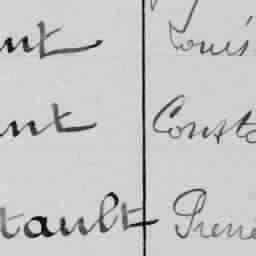 ant Louis
ant Const
tault Pierre